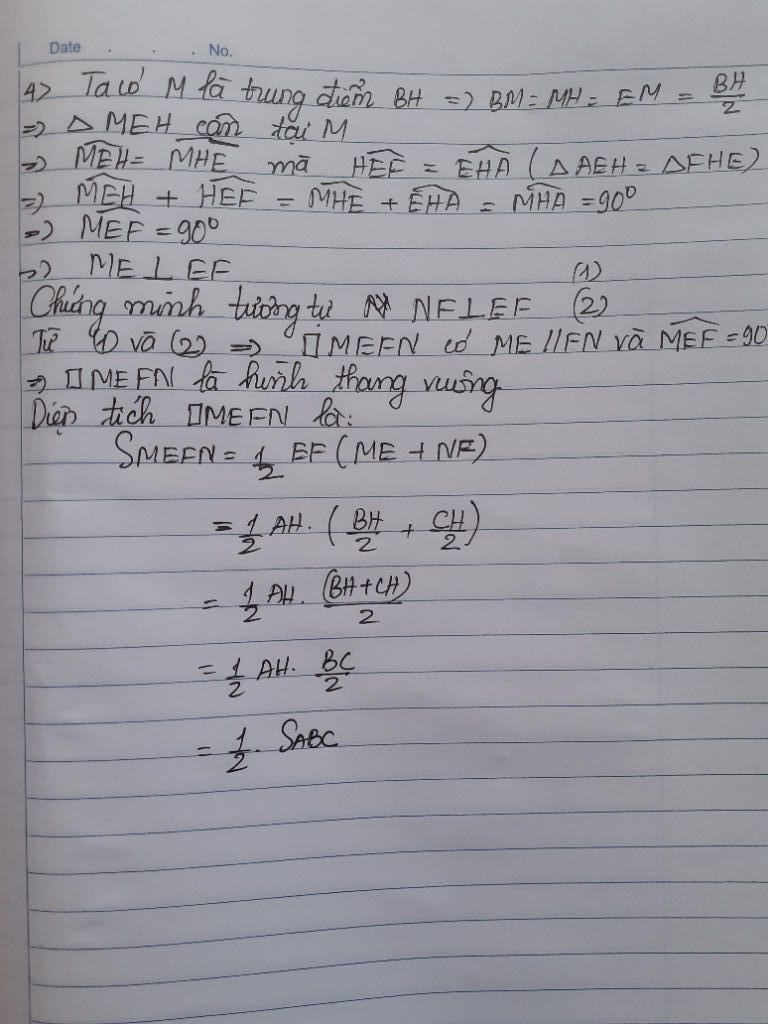 Date . . . No.
4> Ta có M là trung điểm BH => BM = MH = EM = BH/2
=> △ MEH cân tại M
=> MEH = MHE mà HEF = EHA ( △ AEH = △ FHE)
=> MEH + HEF = MHE + EHA = MHA = 90°
=> MEF = 90°
=> ME ⊥ EF (1)
Chứng minh tương tự NF ⊥ EF (2)
Từ (1) và (2) => □MEFN có ME // FN và MEF = 90
=> □MEFN là hình thang vuông
Diện tích □MEFN là:
SMEFN = 1/2 EF ( ME + NF)
= 1/2 AH. ( BH/2 + CH/2 )
= 1/2 AH. (BH+CH)/2
= 1/2 AH. BC/2
= 1/2 . SABC